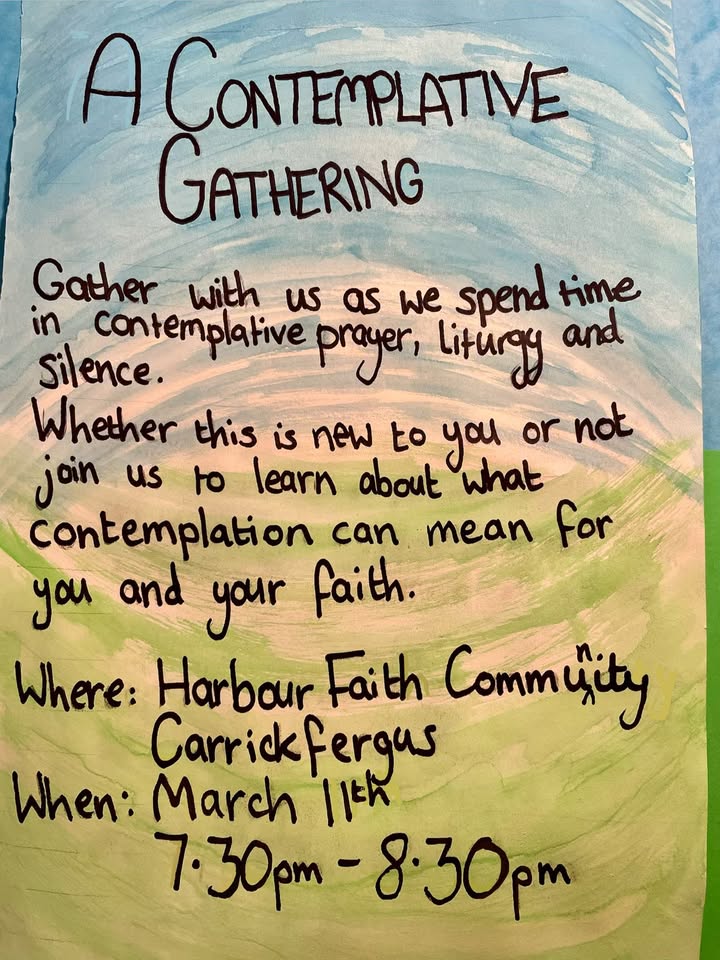 A CONTEMPLATIVE
GATHERING
Gather with us as we spend time
in contemplative prayer, liturgy and
silence.
Whether this is new to you or not
join us to learn about what
contemplation can mean for
you and your faith.
Where: Harbour Faith Community
Carrickfergus
When: March 11th
7.30pm - 8.30pm